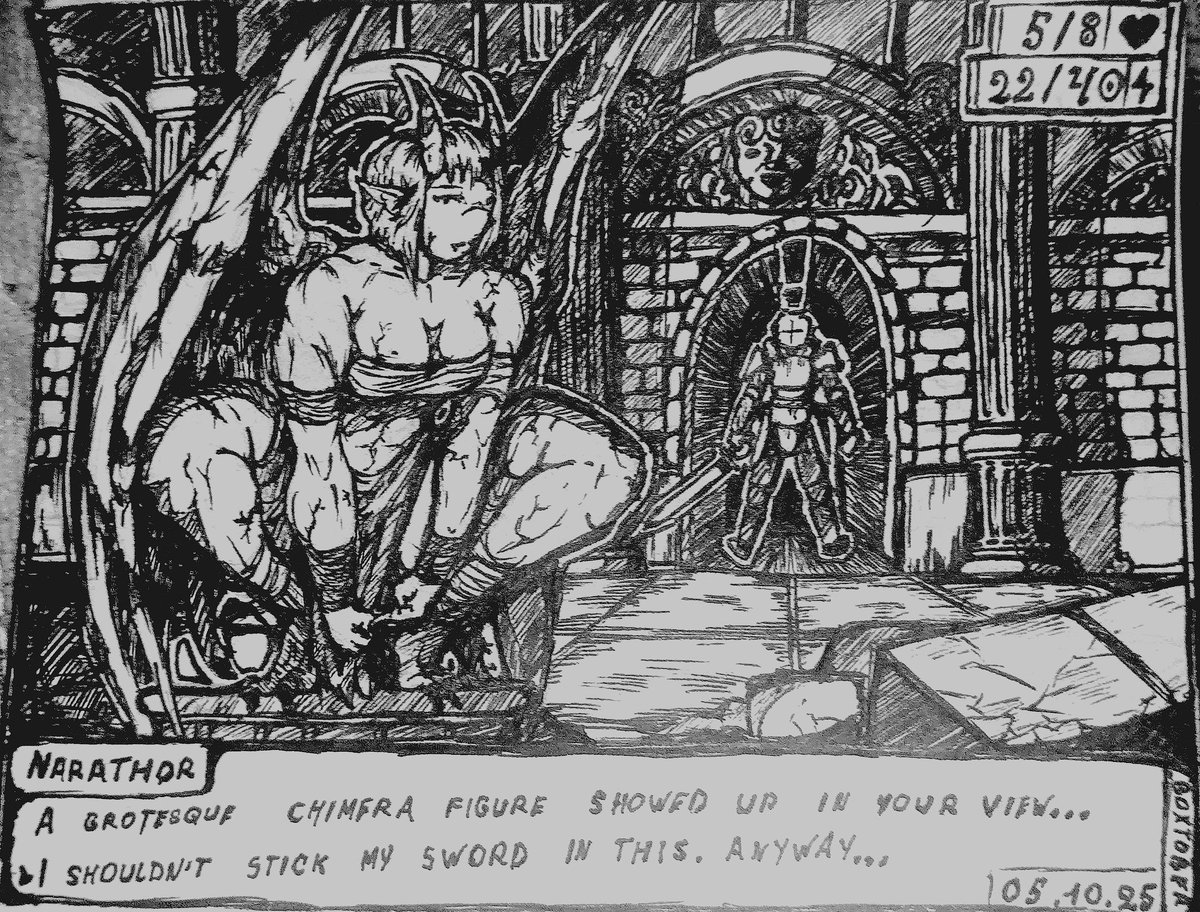 5/8
22/40
NARATHOR
A GROTESQUE CHIMERA FIGURE SHOWED UP IN YOUR VIEW...
I SHOULDN'T STICK MY SWORD IN THIS. ANYWAY...
05.10.25